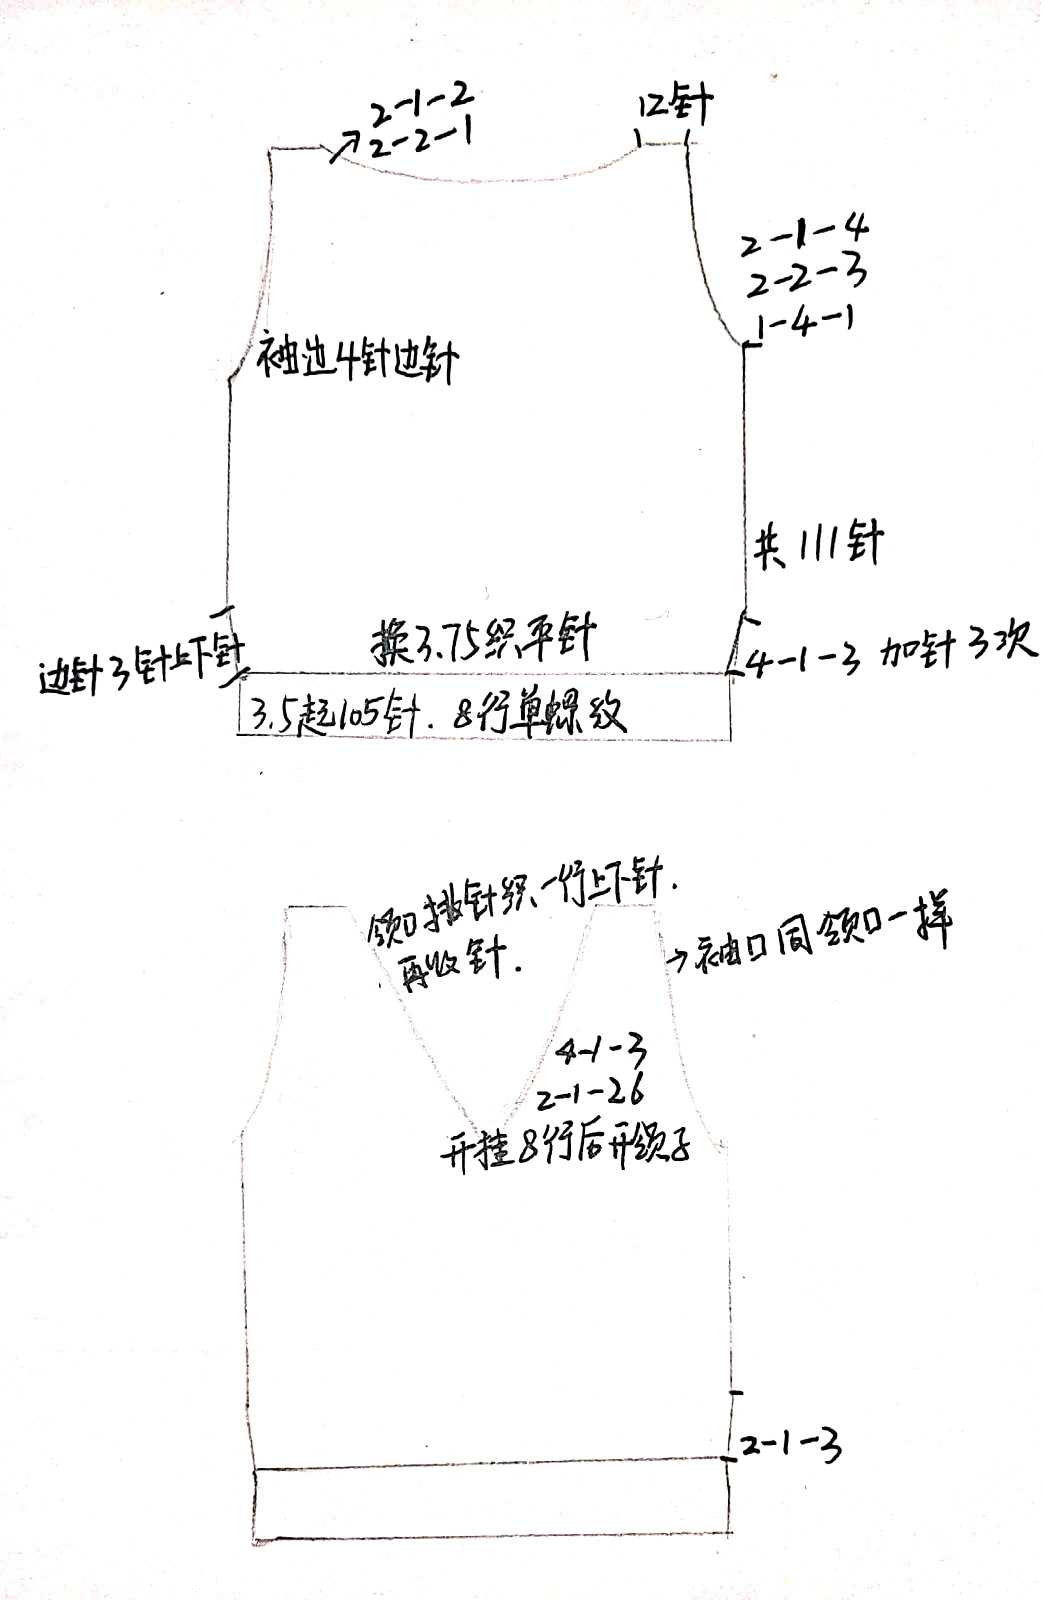 2-1-2
2-2-1
12针
2-1-4
2-2-3
1-4-1
袖边4针边针
共111针
换3.75织平针
边针3针上下针
4-1-3 加针3次
3.5起105针. 8行单螺纹
领口挑针织一行上下针.
再收针.
→袖口同领口一样
4-1-3
2-1-26
开挂8行后开领子
2-1-3